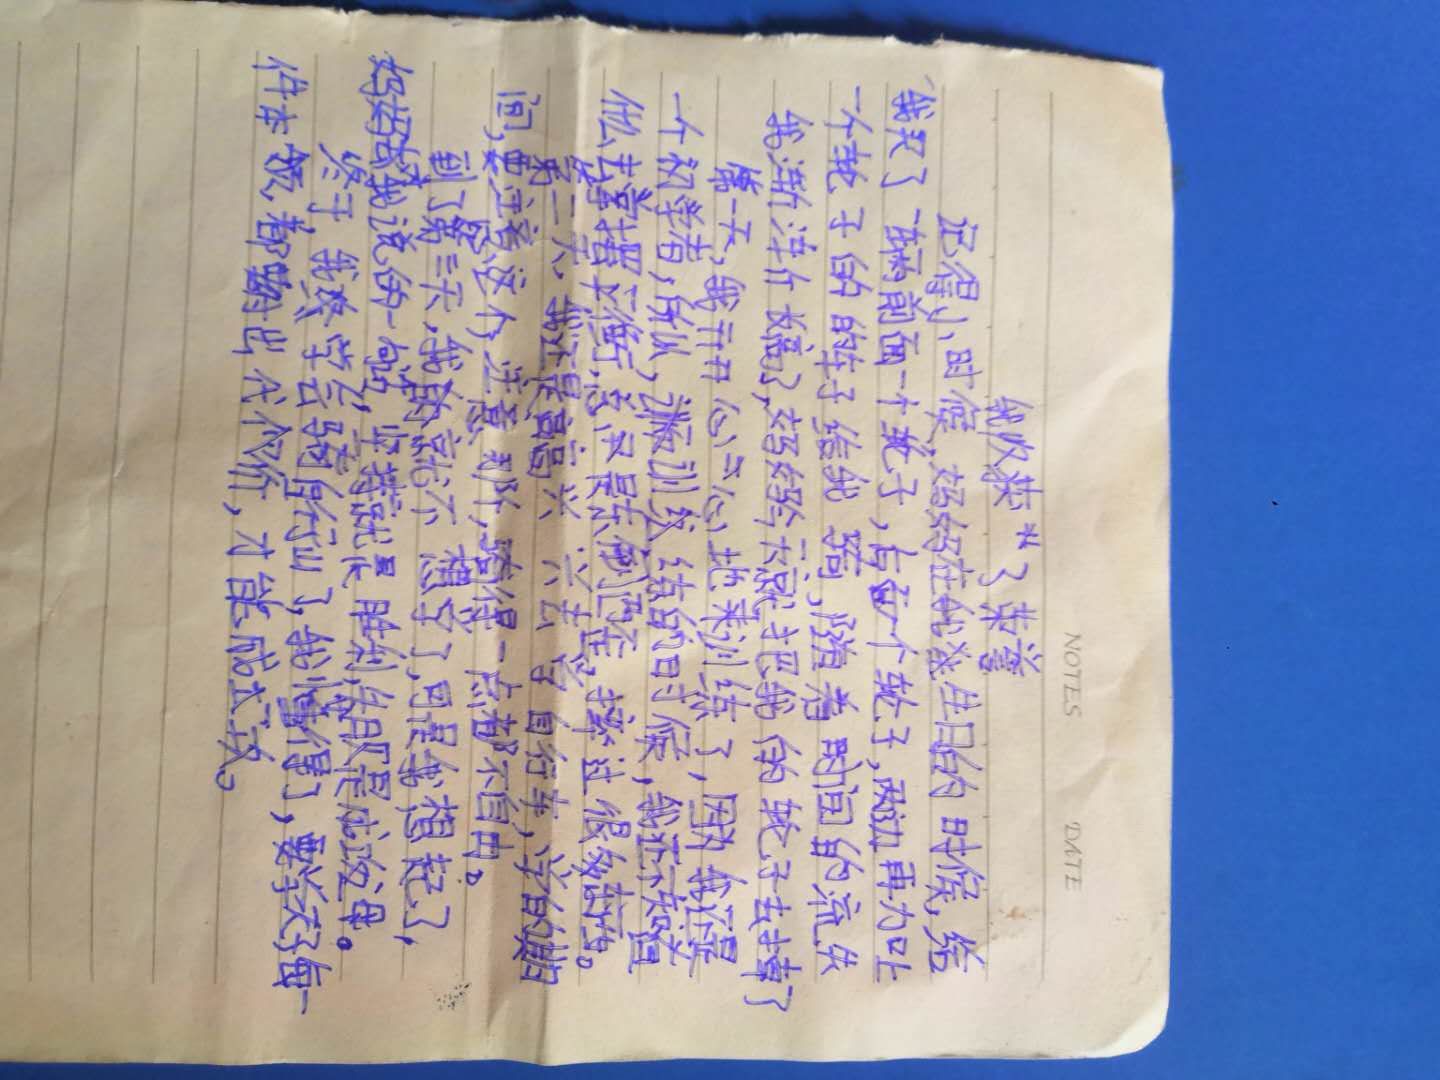 NOTES DATE
我收获了荣誉
记得小时候,妈妈在我发生日的时候,给
我买了一辆前面一个轮子,后面个轮子,两边再加上
一个轮子的的车子给我骑,随着时间的流失
我渐渐什长高了,妈妈 就把我的轮子去掉了
第一天,我开开心心地来训练了,因为我还是
一个初学者,所以,训练的时候,我还不知道
怎么去掌握平衡,总只是东倒西歪,摔过很多
第二天,我还是高高兴兴去学自行车,学的期
间,要注意这个,注意那个,骑得一点都不自由。
到了第三天,我真的就不想学了,可是我想起了,
妈妈对我说的一句话,坚持就是胜利,失败是成功之母。
终于,我终学会骑自行车了,我懂得了,要学天每一
件本领,都要付出代价,才能成